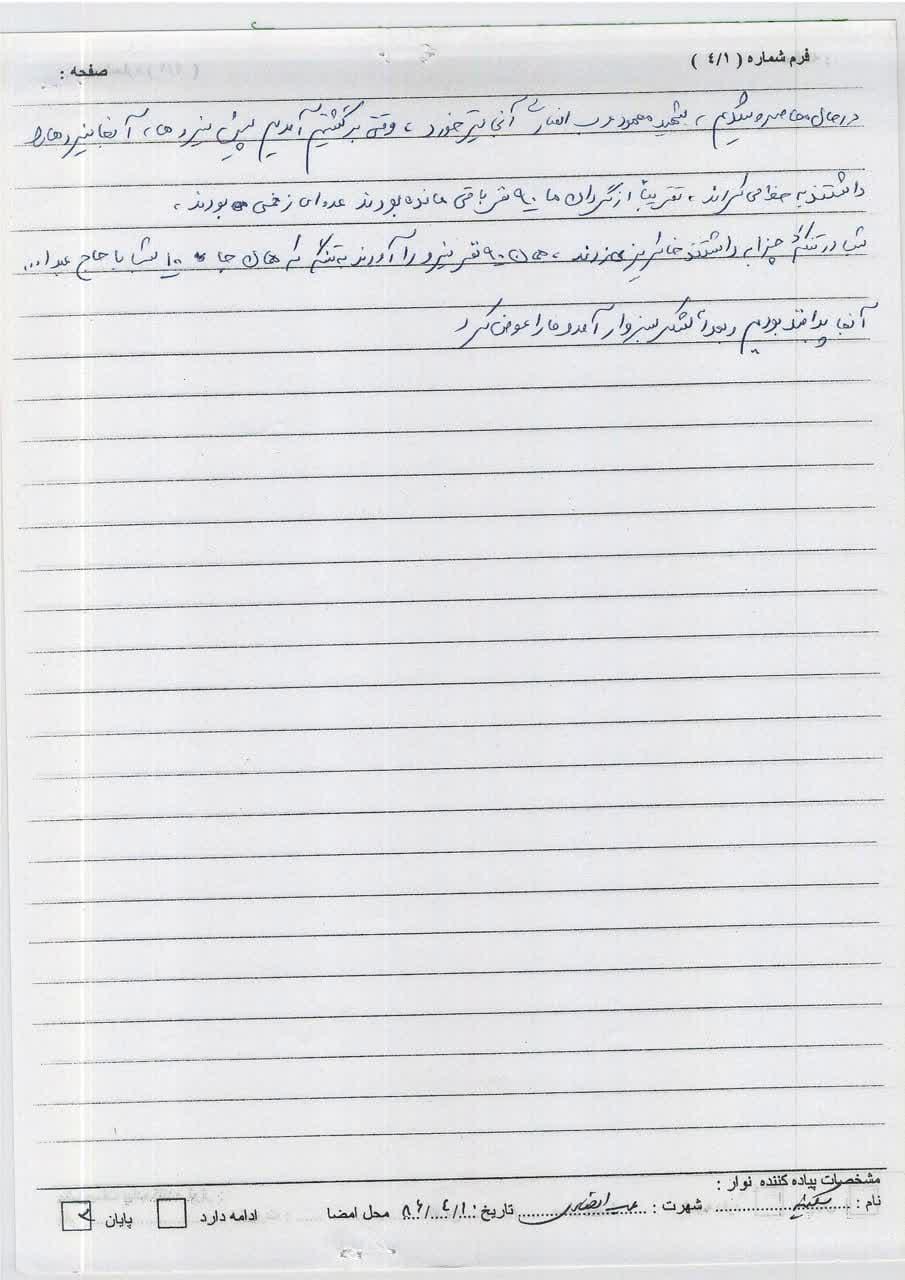 فرم شماره ( ٤/١ )
صفحه :
در حال محاصره شدیم ، شهید محمود عرب انصاری آنجا تیر خورد ، وقتی برگشتیم آمدیم پیش نیروها ، آنجا نیروها را
داشتند به صف می‌کردند ، تقریباً از گردان ما ۹۰ نفر باقی مانده بودند عده‌ای زخمی بودند ،
شب در تنگه چزابه داشتند خاکریز می‌زدند ، همان ۹۰ نفر نیرو را آوردند به تنگه که همان جا ۱۰ شب با حاج عبدا...
آنجا پدافند بودیم و بعداً لشکر سبزوار آمد و ما را عوض کرد
مشخصات پیاده کننده نوار :
نام : سکینه شهرت : عرب انصاری تاریخ : ۸۶/۴/۱ محل امضا ادامه دارد پایان